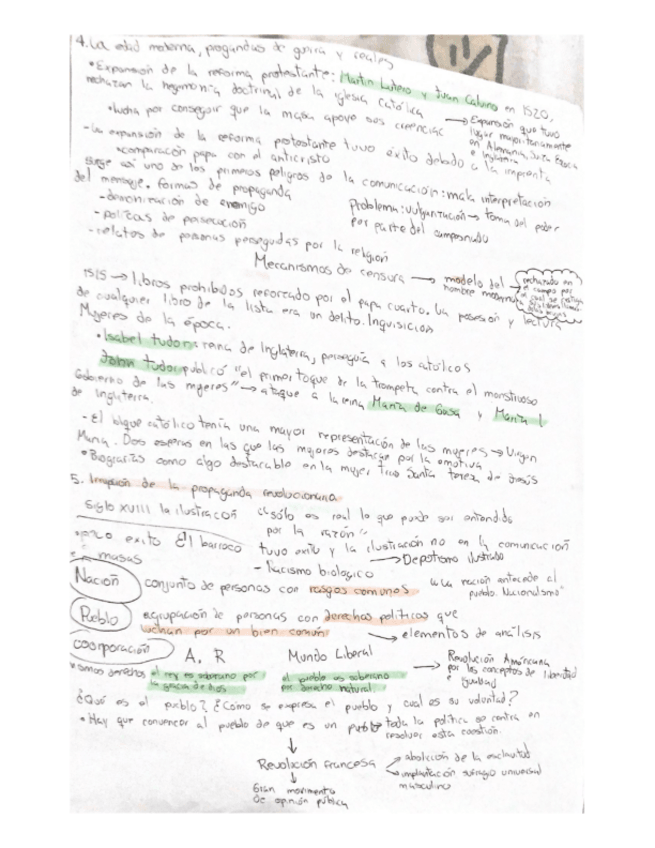 4. La edad moderna, propagandas de guerra y reales
• Expansión de la reforma protestante: Martin Lutero y Juan Calvino en 1520,
rechazan la hegemonía doctrinal de la iglesia católica
→ Expansión que tuvo
lugar mayoritariamente
en Alemania, Suiza,
e Inglaterra
• lucha por conseguir que la masa apoye sus creencias
- La expansión de la reforma protestante tuvo éxito debido a la imprenta
• comparación papa con el anticristo
surge así uno de los primeros peligros de la comunicación: mala interpretación
del mensaje. formas de propaganda
- demonización de enemigo
- políticas de persecución
- relatos de personas perseguidas por la religión
Problema: vulgarización → toma del poder
por parte del campesinado
Mecanismos de censura → modelo del
hombre
rechazado en
el campo por
→ libros prohibidos reforzado por el papa cuarto. La posesión y lectura
de cualquier libro de la lista era un delito. Inquisicion
Mujeres de la época.
• Isabel tudor: reina de Inglaterra, perseguía a los católicos
John tudor publicó "el primer toque de la trompeta contra el monstruoso
Gobierno de las mujeres" → ataque a la reina María de Guisa y María I
de Inglaterra.
- El bloque católico tenía una mayor representación de las mujeres → Virgen
María. Dos esperas en las que las mujeres destacan por la emotiva
• Biografías como algo destacable en la mujer Santa teresa de Jesús
5. Irrupción de la propaganda revolucionaria
Siglo XVIII la ilustración "sólo es real lo que puede ser entendido
por la razón"
• poco exito El barroco tuvo exito y la ilustración no en la comunicación
masas
→ Despotismo ilustrado
- Racismo biologico
Nación conjunto de personas con rasgos comunes
"La nación antecede al
pueblo. Nacionalismo"
Pueblo agrupación de personas con derechos políticos que
luchan por un bien común
→ elementos de análisis
coorporación
A, R Mundo Liberal
mismos derechos el rey es soberano por
la gracia de dios
el pueblo es soberano
por derecho natural.
→ Revolución Américana
por los conceptos de libertad
e igualdad
¿Qué es el pueblo? ¿Cómo se expresa el pueblo y cual es su voluntad?
• Hay que convencer al pueblo de que es un pueblo toda la política se centra en
resolver esta cuestión.
↓
Revolución francesa
→ abolición de la esclavitud
→ implantación sufragio universal
masculino
↓
Gran movimiento
de opinión pública